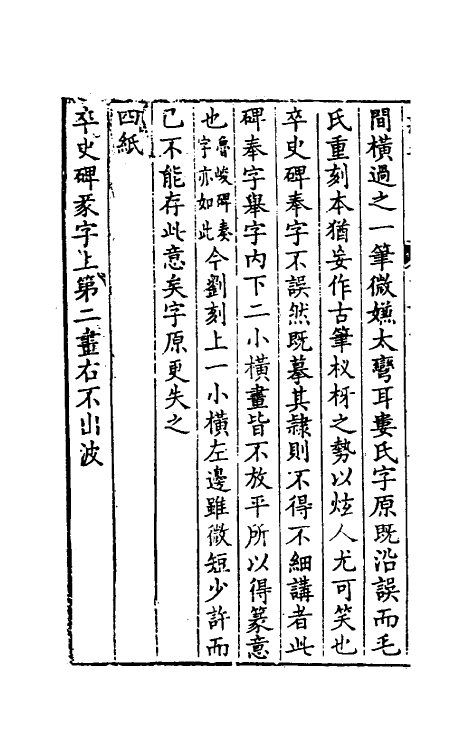 間橫過之一筆微嫌太彎耳婁氏字原既沿誤而毛
氏重刻本猶妄作古筆杈枒之勢以炫人尤可笑也
卒史碑奉字不誤然既摹其隸則不得不細講者此
碑奉字舉字內下二小橫畫皆不放平所以得篆意
也魯峻碑奏字亦如此今劉刻上一小橫左邊雖微短少許而
已不能存此意矣字原更失之
四紙
卒史碑䝉字上第二畫右不出波